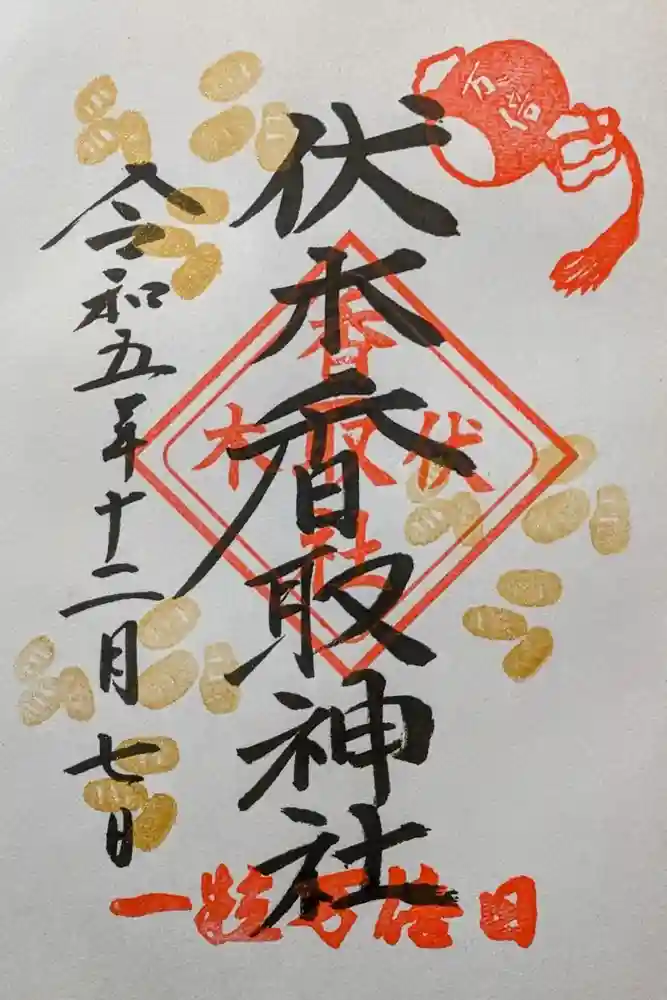 万倍
伏木香取神社
香取社
伏木
令和五年十二月七日
一粒万倍日